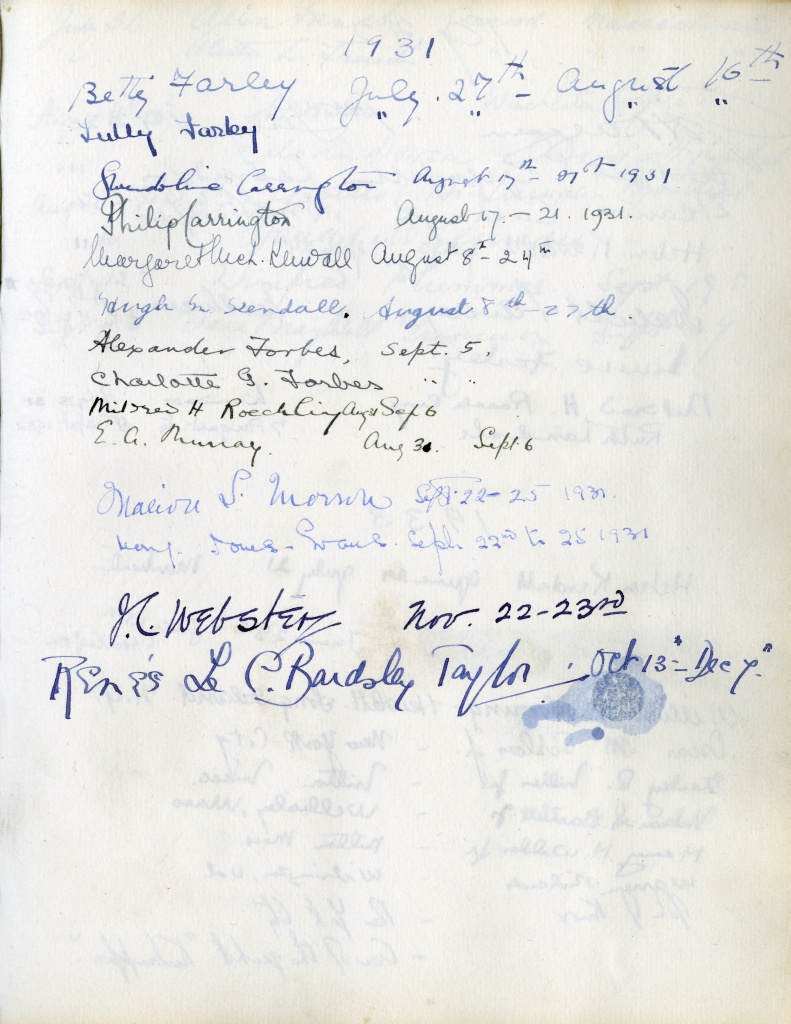 1931
Betty Farley July 27th August 16th
Lilly Farley " " " "
Gwendoline Carrington August 17th - 21st 1931
Philip Carrington August 17. - 21. 1931.
Margaret McN. Kendall August 8th - 24th
Hugh M Kendall. August 8th - 27th.
Alexander Forbes, Sept. 5.
Charlotte G. Forbes " "
Mildred H Roechling Aug 31 Sep 6
E. A. Murray. Aug 31. Sept 6
Marion L. Morson Sept. 22 - 25 1931.
Jones-Evans. Sept. 22nd to 25 1931
J.C. Webster Nov. 22-23rd
Renés Le C. Bardsley Taylor. Oct 13" - Dec 7"